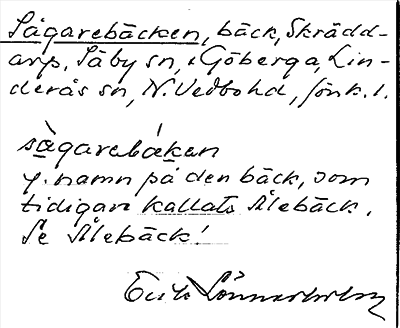 Sågarebäcken, bäck, Skrädd-
arp, Säby sn, i Göberga, Lin-
derås sn, N. Vedbohd, Jönk. l.
sågarebäken
y. namn på den bäck, som
tidigare kallats Ålebäck.
Se Ålebäck!
Erik